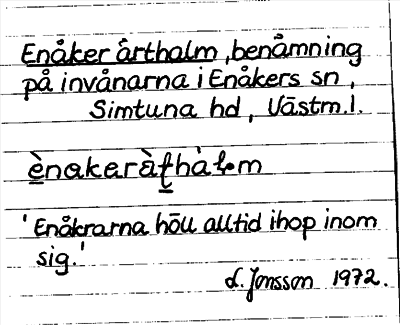 Enåker årthalm, benåmning
på invånarna i Enåkers sn,
Simtuna hd, Västm.l.
ènakeràṭhàlm
'Enåkrarna höll alltid ihop inom
sig.'
L. Jonsson 1972.